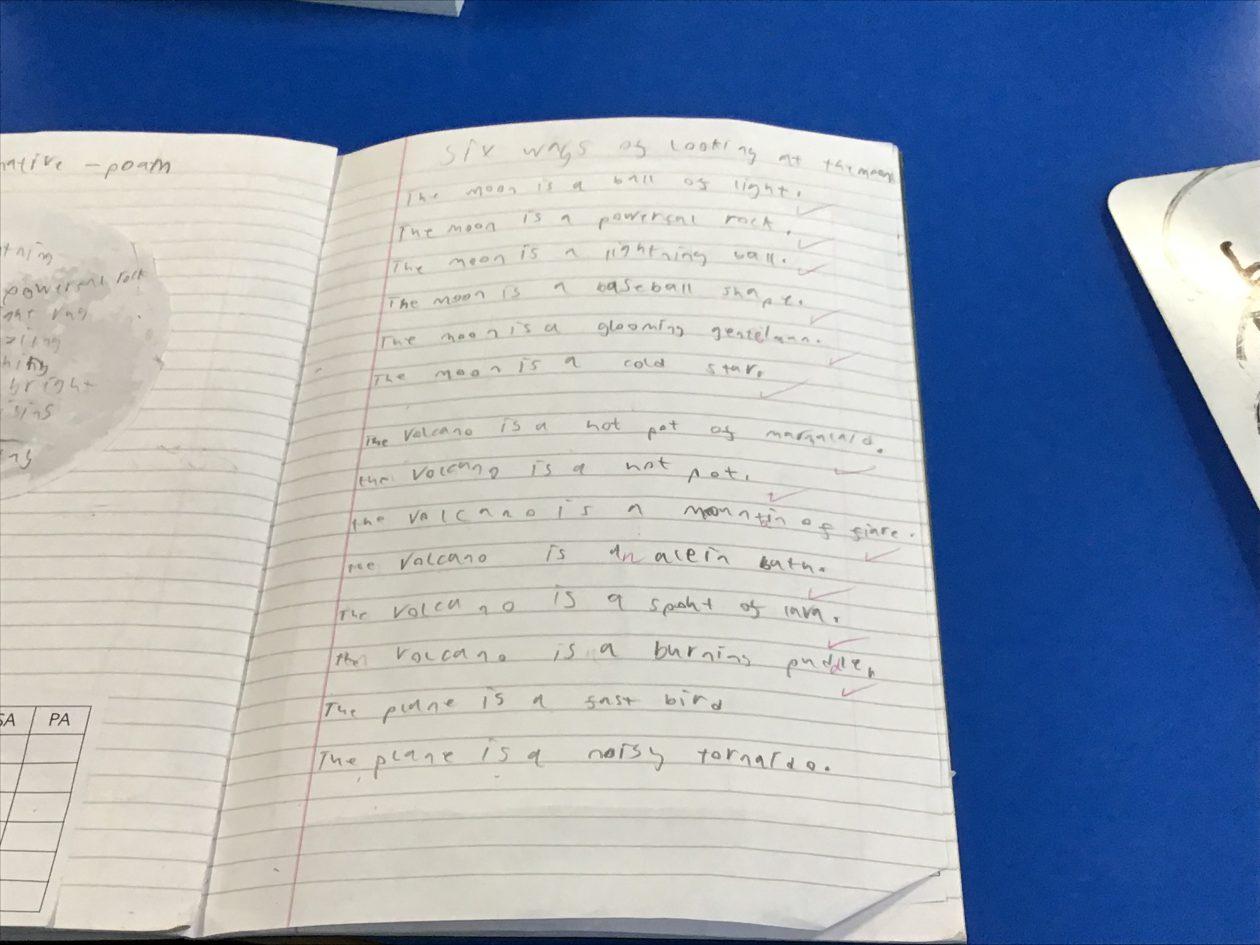 native - poam
tning
powerful rock
ght
zling
hing
bright
sing
ng
SA PA
six ways of looking at the moon
The moon is a ball of light.
The moon is a powerful rock.
The moon is a lightning ball.
The moon is a baseball shape.
The moon is a glooming gentelman.
The moon is a cold star.
The volcano is a hot pot of
the volcano is a hot pot.
the valcano is a mountin of fiare.
The volcano is an bath.
The volcano is a of lava.
the volcano is a burning puddle.
The plane is a fast bird
The plane is a noisy tornardo.